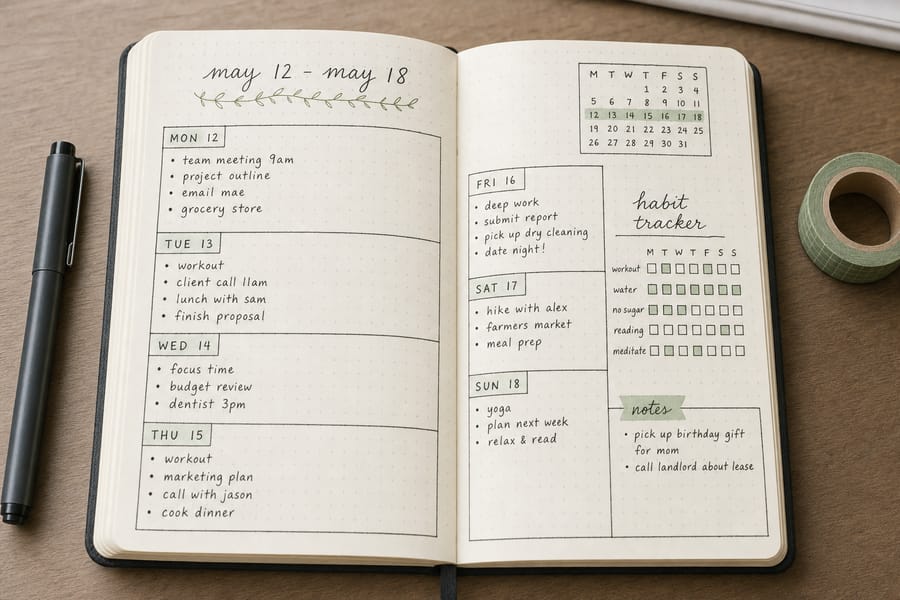 may 12 - may 18
MON 12
• team meeting 9am
• project outline
• email mae
• grocery store
TUE 13
• workout
• client call 11am
• lunch with sam
• finish proposal
WED 14
• focus time
• budget review
• dentist 3pm
THU 15
• workout
• marketing plan
• call with jason
• cook dinner
M T W T F S S
1 2 3 4
5 6 7 8 9 10 11
12 13 14 15 16 17 18
19 20 21 22 23 24 25
26 27 28 29 30 31
FRI 16
• deep work
• submit report
• pick up dry cleaning
• date night!
SAT 17
• hike with alex
• farmers market
• meal prep
SUN 18
• yoga
• plan next week
• relax & read
habit
tracker
M T W T F S S
workout
water
no sugar
reading
meditate
notes
• pick up birthday gift
for mom
• call landlord about lease